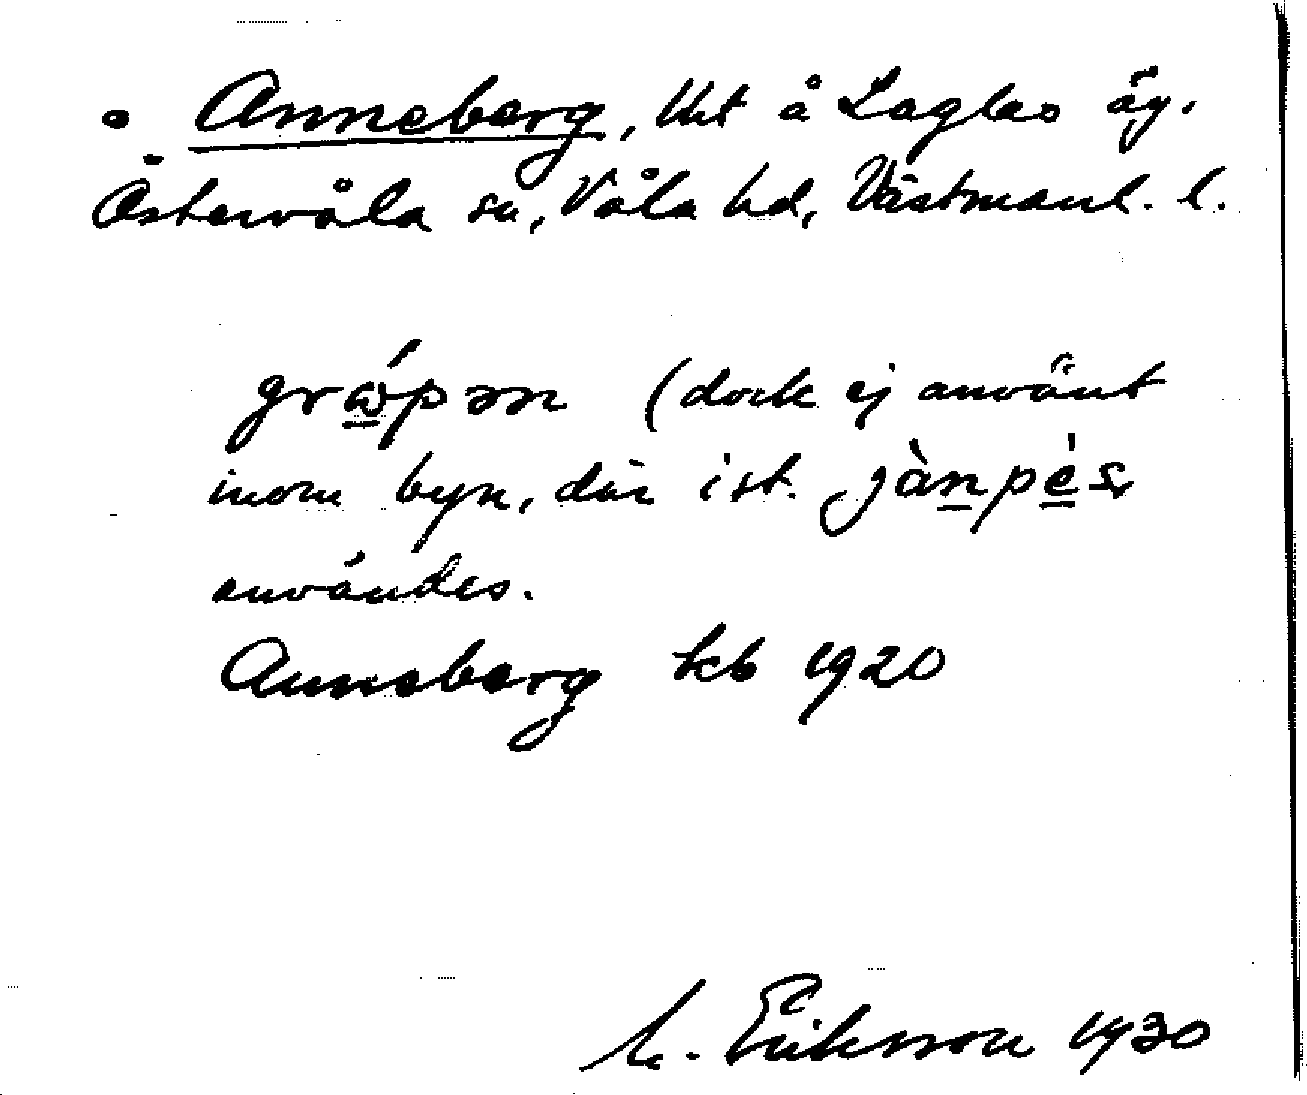 • Anneberg, lht å Lagbo äg.
Östervåla sn, Våla hd, Västmanl. l.
grώ̲pən (dock ej använt
inom byn, där ist. jàn̲pè̲s
användes.
Anneberg kb 1920
M. Eriksson 1930